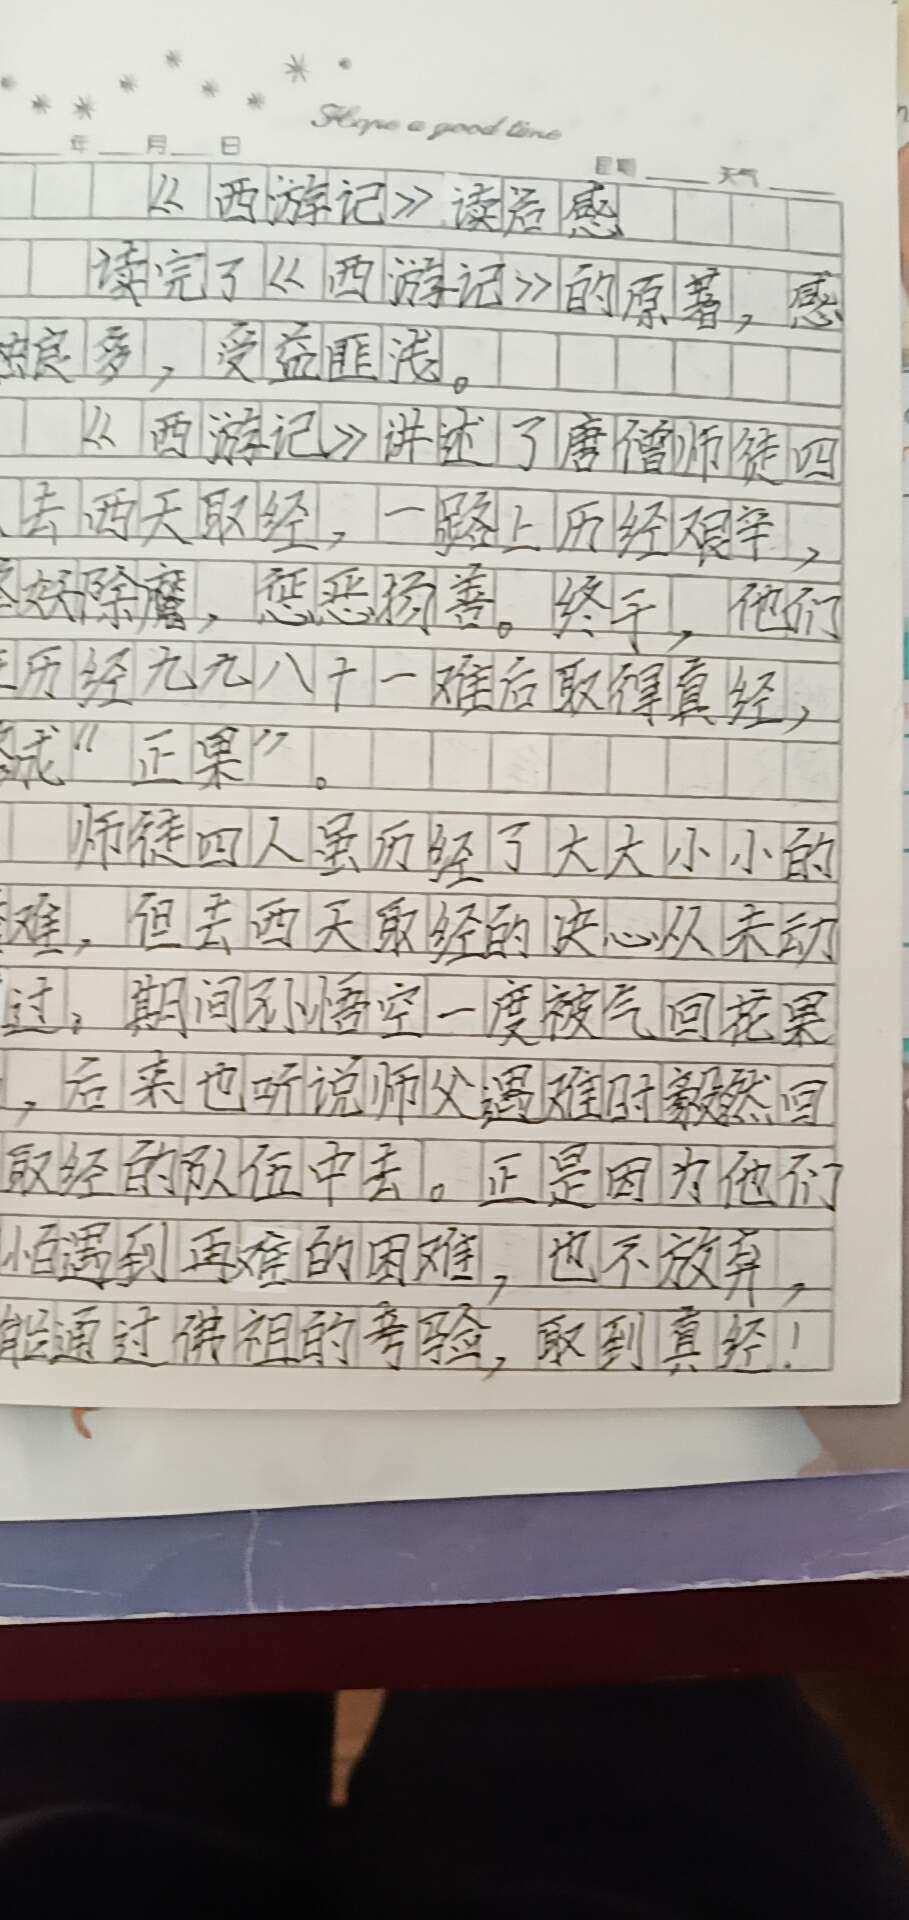 Hope a good time
年 月 日 星期 天气
《西游记》读后感
读完了《西游记》的原著，感
良多，受益匪浅。
《西游记》讲述了唐僧师徒四
去西天取经，一路上历经艰辛，
妖除魔，惩恶扬善。终于，他们
历经九九八十一难后取得真经，
成“正果”。
师徒四人虽历经了大大小小的
难，但去西天取经的决心从未动
过。期间孙悟空一度被气回花果
，后来也听说师父遇难时毅然回
取经的队伍中去。正是因为他们
怕遇到再难的困难，也不放弃，
能通过佛祖的考验，取到真经！